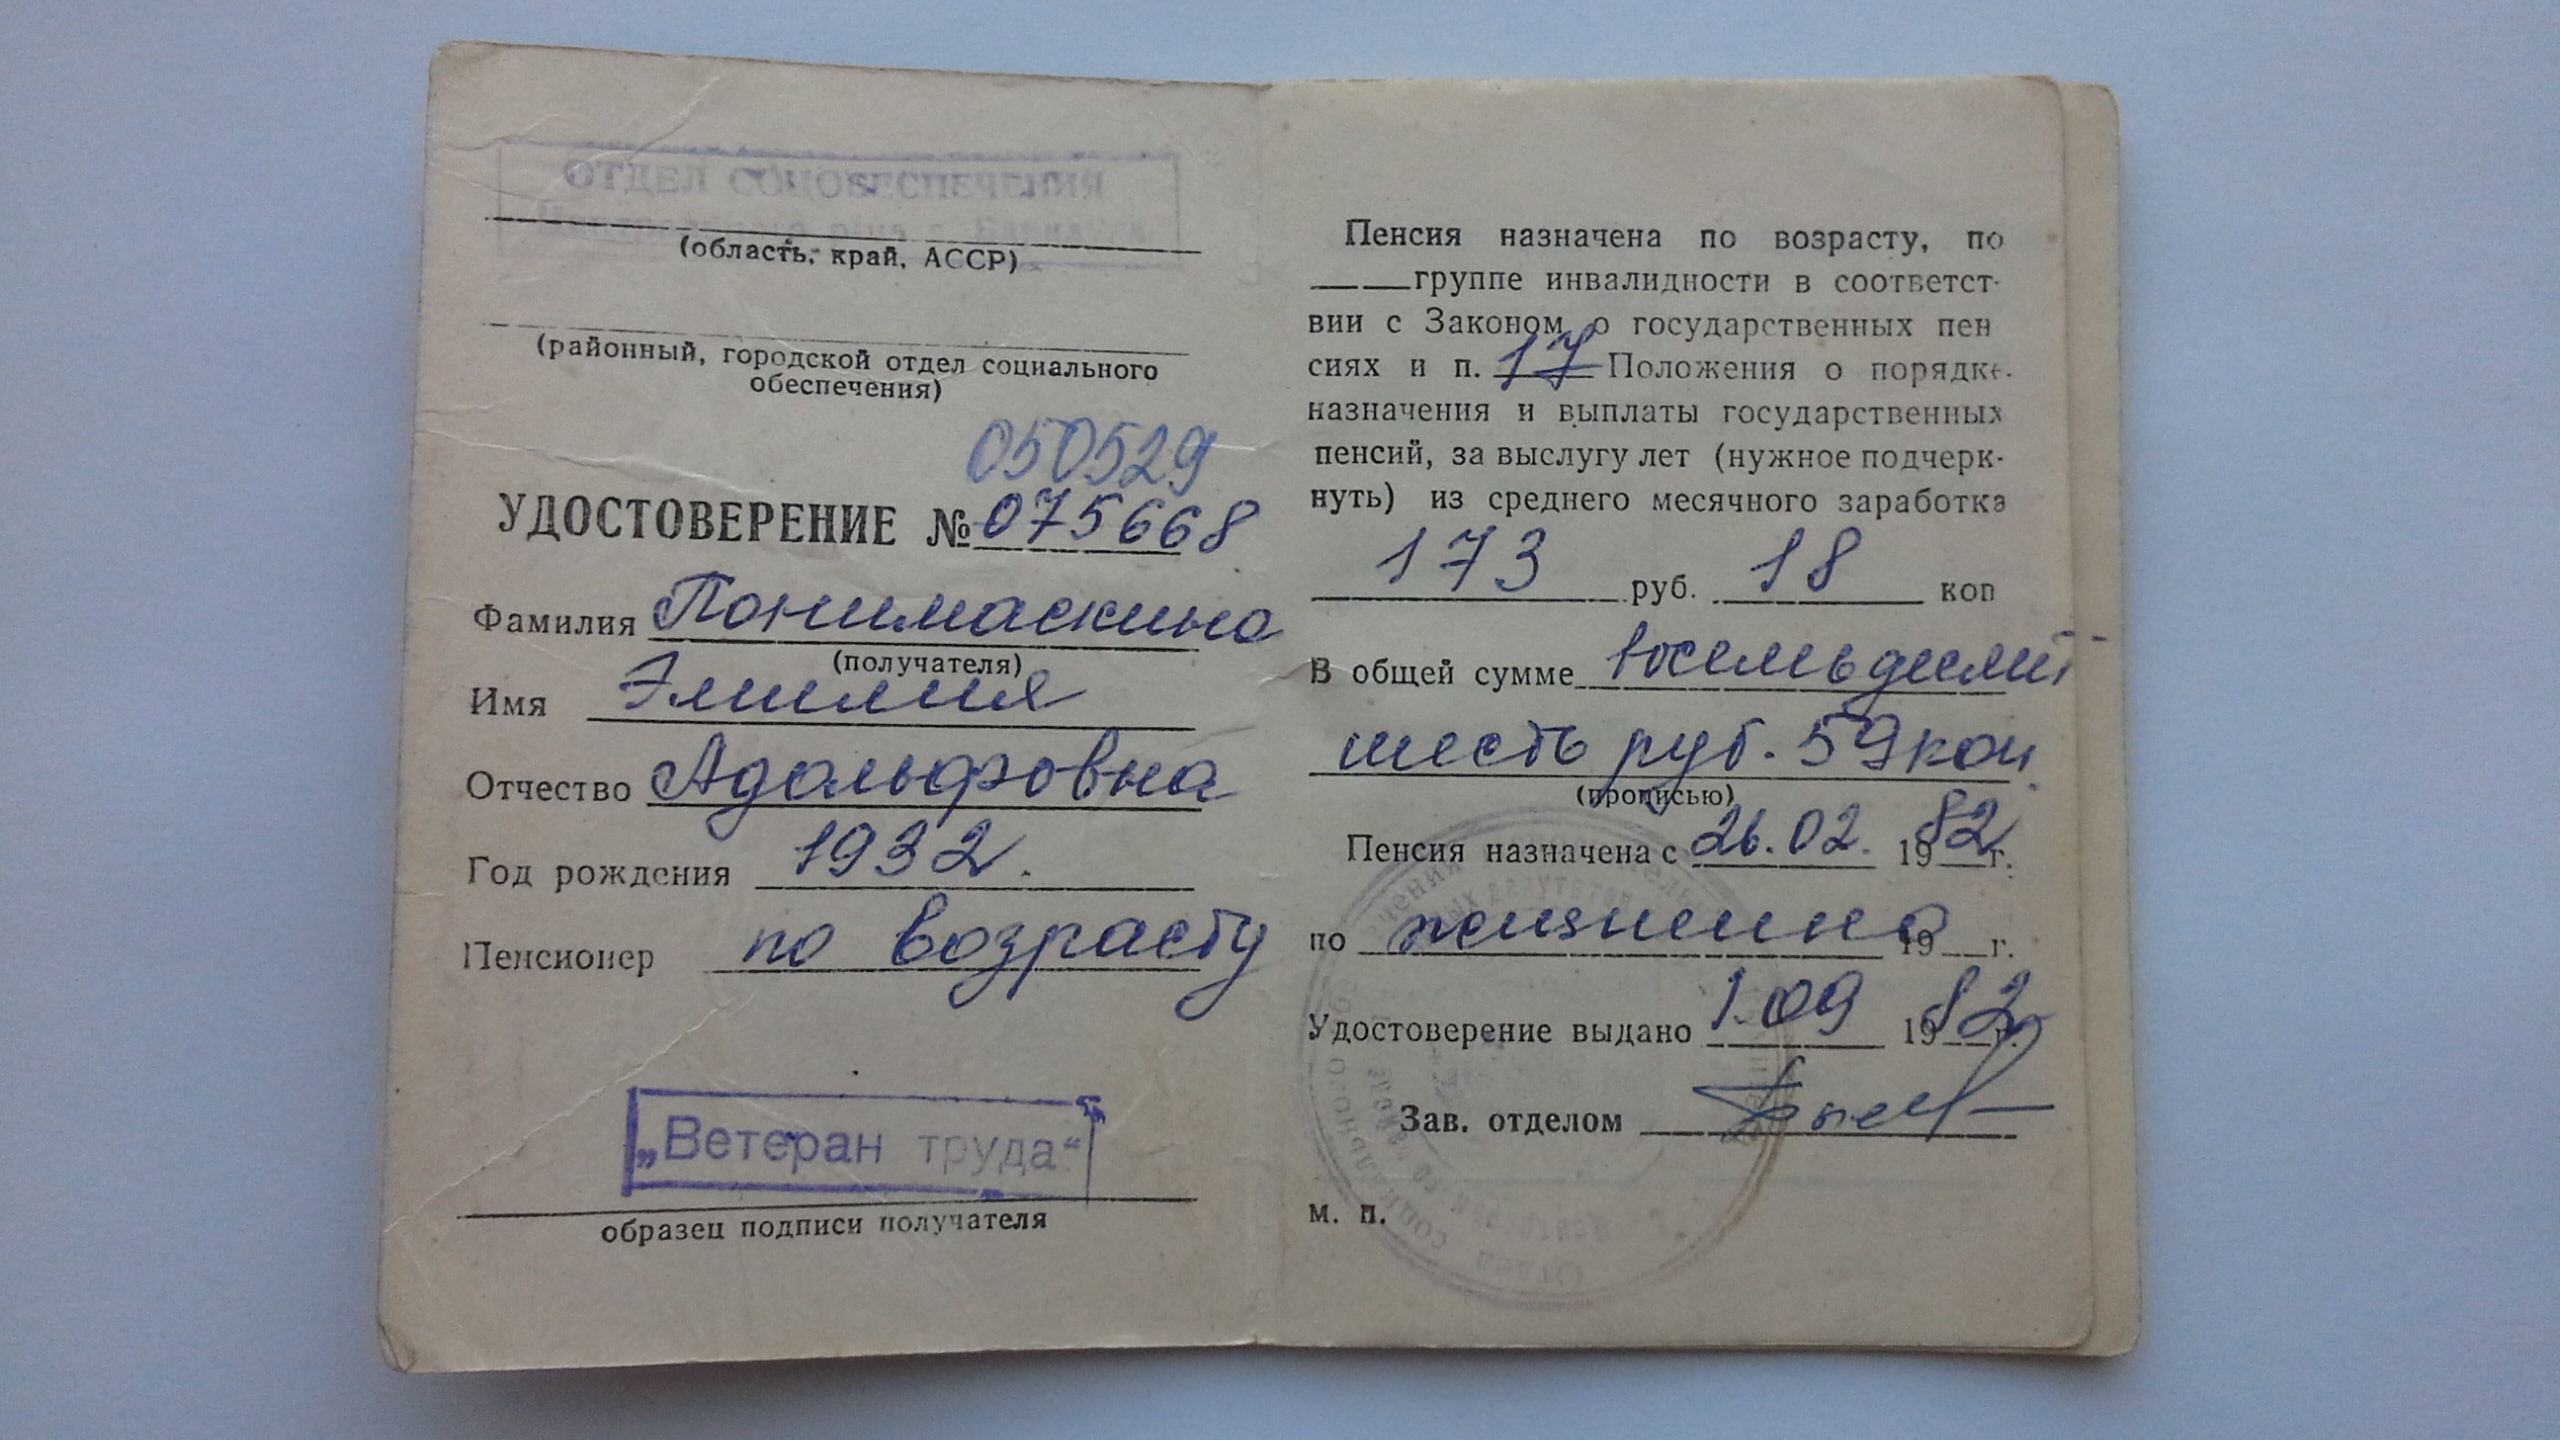 ОТДЕЛ СОЦОБЕСПЕЧЕНИЯ
Центрального р-на г. Барнаула
(область, край, АССР)
(районный, городской отдел социального
обеспечения)
050529
УДОСТОВЕРЕНИЕ № 075668
Фамилия Понимаскина
(получателя)
Имя Эмилия
Отчество Адольфовна
Год рождения 1932.
Пенсионер по возрасту
„Ветеран труда“
образец подписи получателя
Пенсия назначена по возрасту, по
группе инвалидности в соответст-
вии с Законом о государственных пен
сиях и п. 17 Положения о порядке
назначения и выплаты государственных
пенсий, за выслугу лет (нужное подчерк-
нуть) из среднего месячного заработка
173 руб. 18 коп
В общей сумме восемьдесят
шесть руб. 59 коп.
(прописью)
Пенсия назначена с 26.02. 1982 г.
по жизненно 19 г.
Удостоверение выдано 1.09 1982 г.
Зав. отделом
м. п.